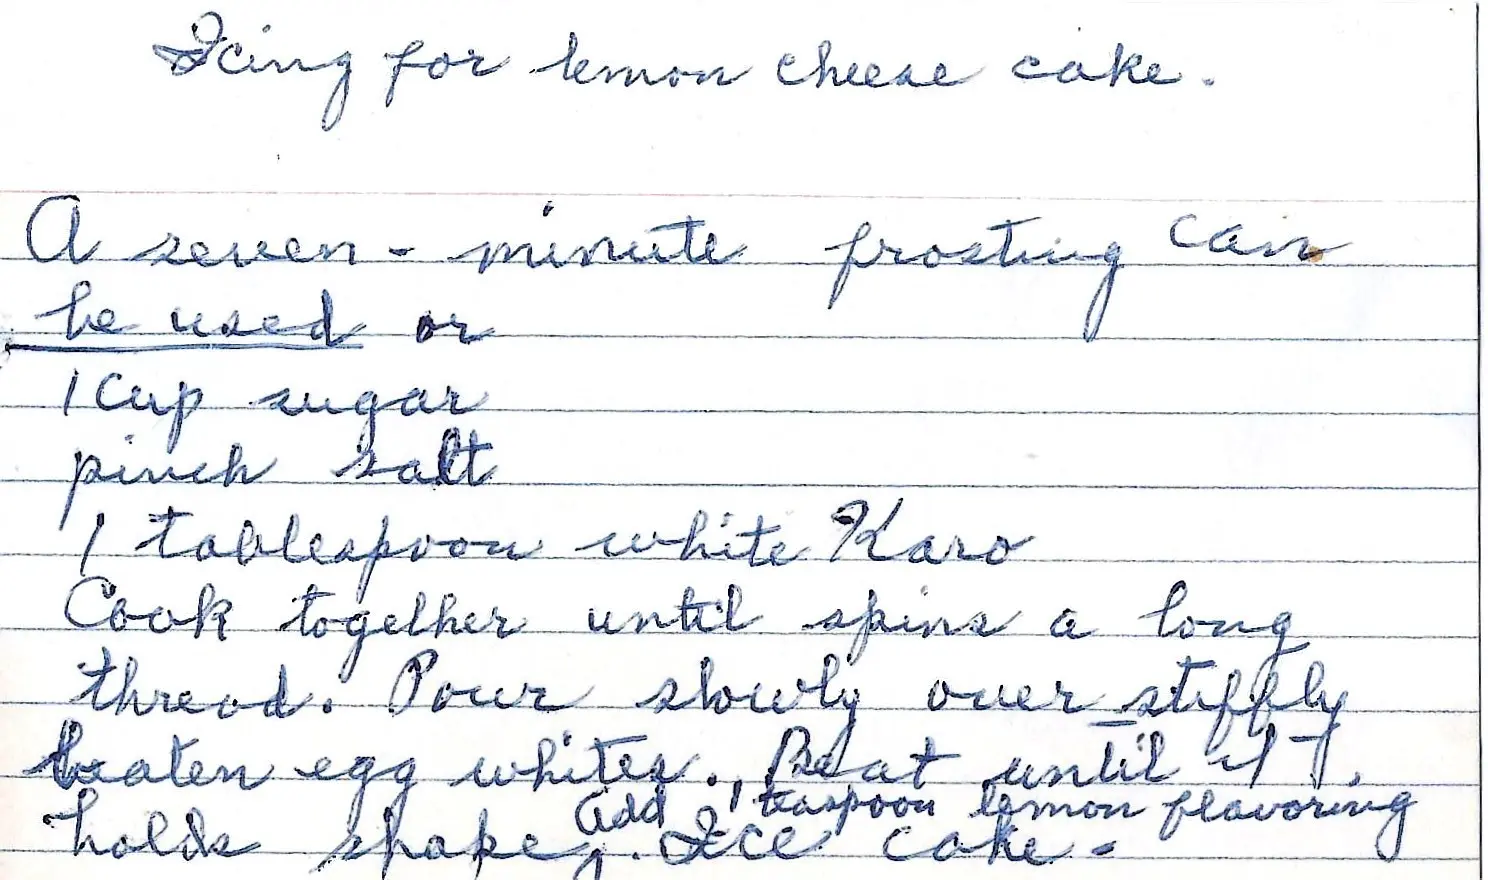 Icing for lemon cheese cake.
A seven-minute frosting can
be used or
1 cup sugar
pinch salt
1 tablespoon white Karo
Cook together until spins a long
thread. Pour slowly over stiffly
beaten egg whites. Beat until it
add 1 teaspoon lemon flavoring
holds shape. Ice cake.